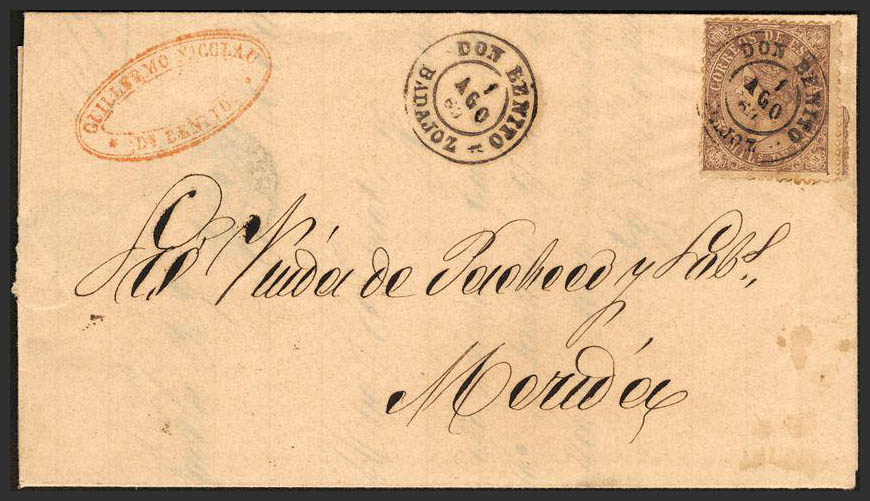 GUILLERMO NICOLAU
DN BENITO
DON BENITO
1
AGO
69
BADAJOZ
CORREOS DE ES
DON BENITO
1
AGO
69
Viuda de Pacheco y Sobs.
Merida